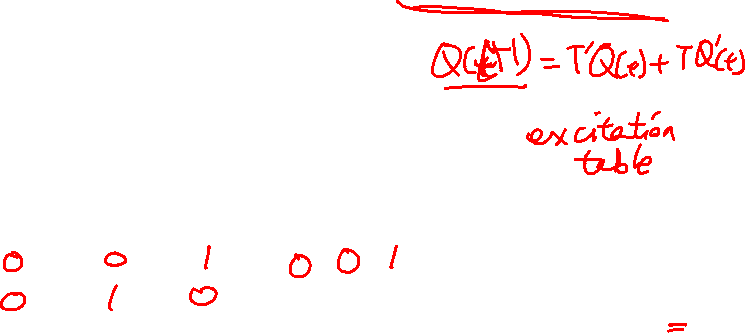 Q(t+1) = T'Q(t) + TQ'(t)
excitation
table
0 0 1 0 0 1
0 1 0
=